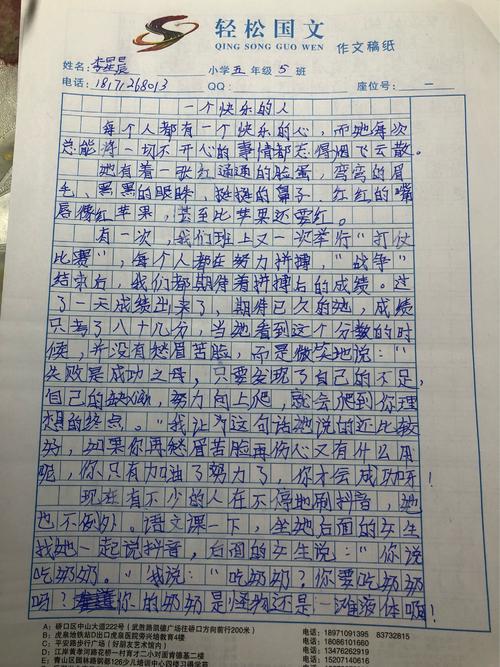 轻松国文
QING SONG GUO WEN 作文稿纸
姓名: 李星晨 小学五年级5班
电话: 18171268013 QQ: 座位号: 一
一个快乐的人
每个人都有一个快乐的心,而她每次
总能将一切不开心的事情都忘得烟飞云散。
她有着一张红通通的脸蛋,弯弯的眉
毛、黑黑的眼眸、挺挺的鼻子、红红的嘴
唇像红苹果,甚至比苹果还要红。
有一次,我们班上又一次举行"打仗
比赛",每个人都在努力拼搏,"战争"
结束后,我们都期待着拼搏后的成绩。过
了一天成绩出来了,期待已久的她,成绩
只考了八十几分,当她看到这个分数的时
候,并没有愁眉苦脸,而是微笑地说:"
失败是成功之母,只要发现了自己的不足,
自己的,努力向上爬,就会爬到你理
想的终点。"我认为这句话她说的还比较
好,如果你再愁眉苦脸再伤心又有什么用
呢,你只有加油了努力了,你才会成功呀!
现在有不少的人在不停地刷抖音,她
也不例外。语文课一下,坐她后面的女生
找她一起说抖音,后面的女生说:"你说
吃奶奶。"我说:"吃奶奶?你要吃奶奶
吗?你的奶奶是怪物还是一滩液体啊!
A: 硚口区中山大道222号(武胜路凯德广场往硚口方向前行200米) 电话: 18971091395 83732815
B: 虎泉地铁站D出口虎泉院旁兴培教育4楼 电话: 18086101660
C: 平安路步行广场(好朋友艺术馆内) 电话: 13476262919
D: 江岸黄孝河路花桥一村育才二小对面百佳超市二楼 电话: 15207140616